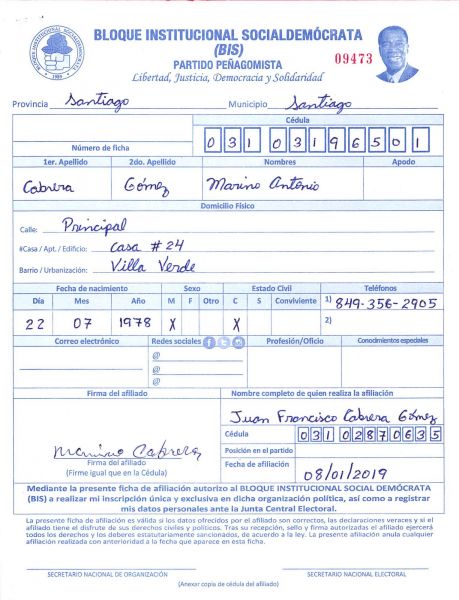 BLOQUE INSTITUCIONAL SOCIALDEMÓCRATA
(BIS)
PARTIDO PEÑAGOMISTA
Libertad, Justicia, Democracia y Solidaridad
09473
Provincia Santiago Municipio Santiago
Cédula
Número de ficha 031 0319650 1
1er. Apellido 2do. Apellido Nombres Apodo
Cabrera Gómez Marino Antonio
Domicilio Físico
Calle: Principal
#Casa / Apt. / Edificio: casa # 24
Barrio / Urbanización: Villa Verde
Fecha de nacimiento Sexo Estado Civil Teléfonos
Día Mes Año M F Otro C S Conviviente 1) 849-356-2905
22 07 1978 X X 2)
Correo electrónico Redes sociales Profesión/Oficio Conocimientos especiales
@
@
@
Firma del afiliado Nombre completo de quien realiza la afiliación
Juan Francisco Cabrera Gómez
Cédula
031 0287063 5
Marino Cabrera
Posición en el partido
Firma del afiliado
(Firme igual que en la Cédula)
Fecha de afiliación 08/01/2019
Mediante la presente ficha de afiliación autorizo al BLOQUE INSTITUCIONAL SOCIAL DEMÓCRATA
(BIS) a realizar mi inscripción única y exclusiva en dicha organización política, así como a registrar
mis datos personales ante la Junta Central Electoral.
La presente ficha de afiliación es válida si los datos ofrecidos por el afiliado son correctos, las declaraciones veraces y si el
afiliado tiene el disfrute de sus derechos civiles y políticos. Tras su recepción, sello y firma autorizadas el afiliado ejercerá
todos los derechos y los deberes estatutariamente sancionados, de acuerdo a la ley. La presente afiliación anula cualquier
afiliación realizada con anterioridad a la fecha que aparece en esta ficha.
SECRETARIO NACIONAL DE ORGANIZACIÓN SECRETARIO NACIONAL ELECTORAL
(Anexar copia de cédula del afiliado)